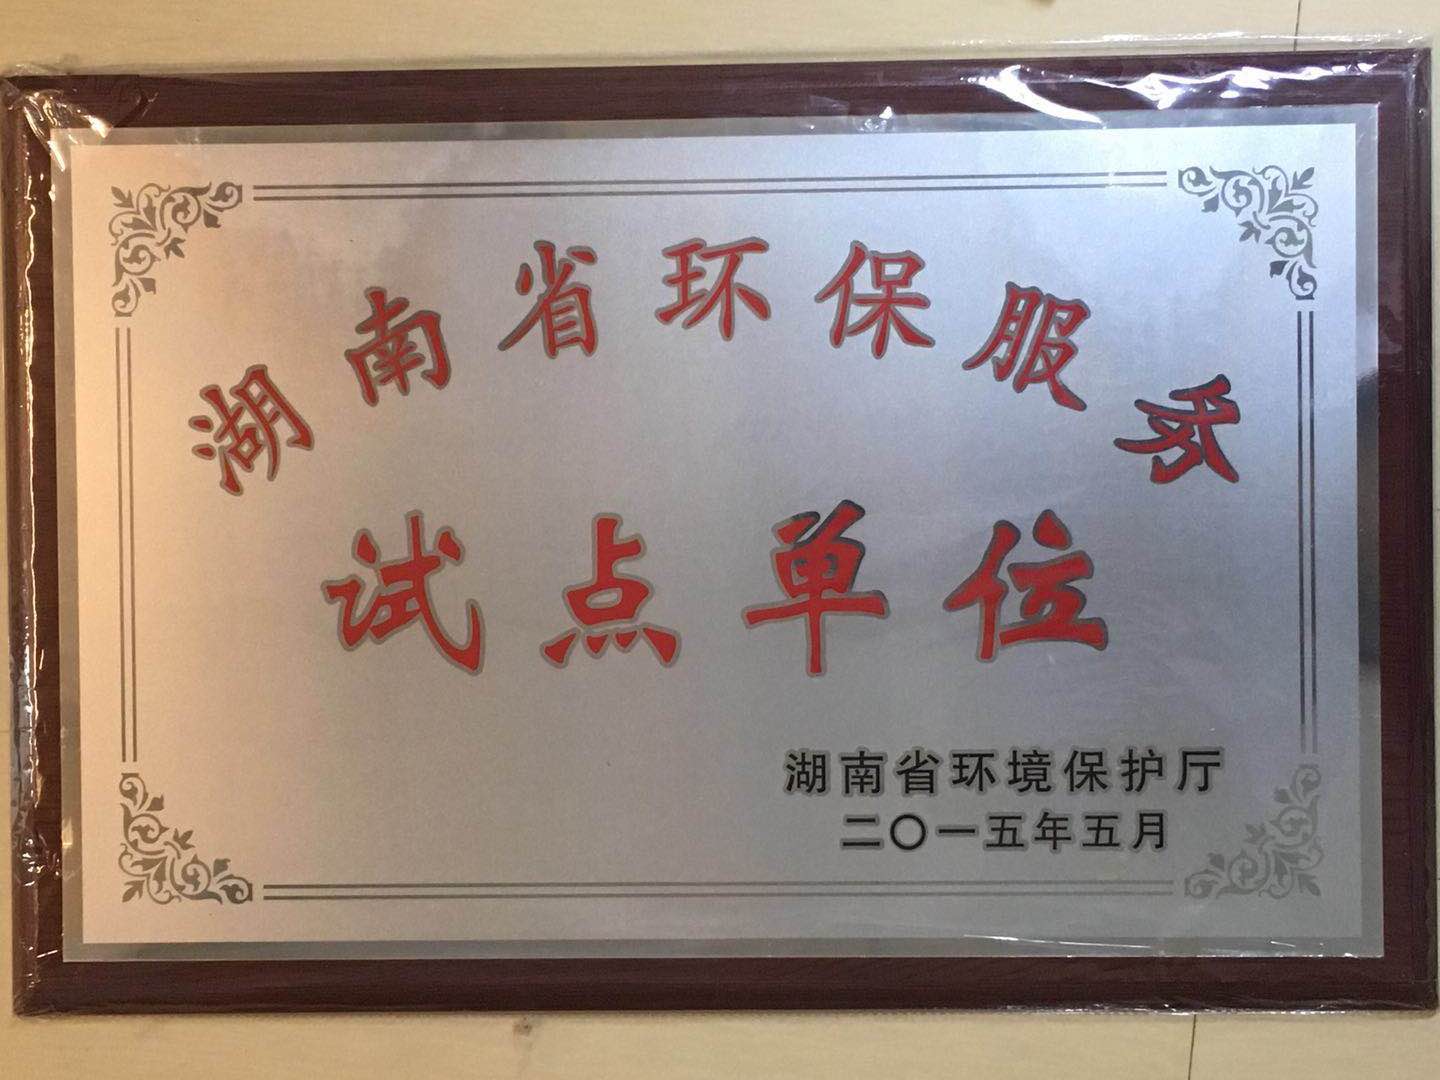 湖南省环保服务
试点单位
湖南省环境保护厅
二〇一五年五月